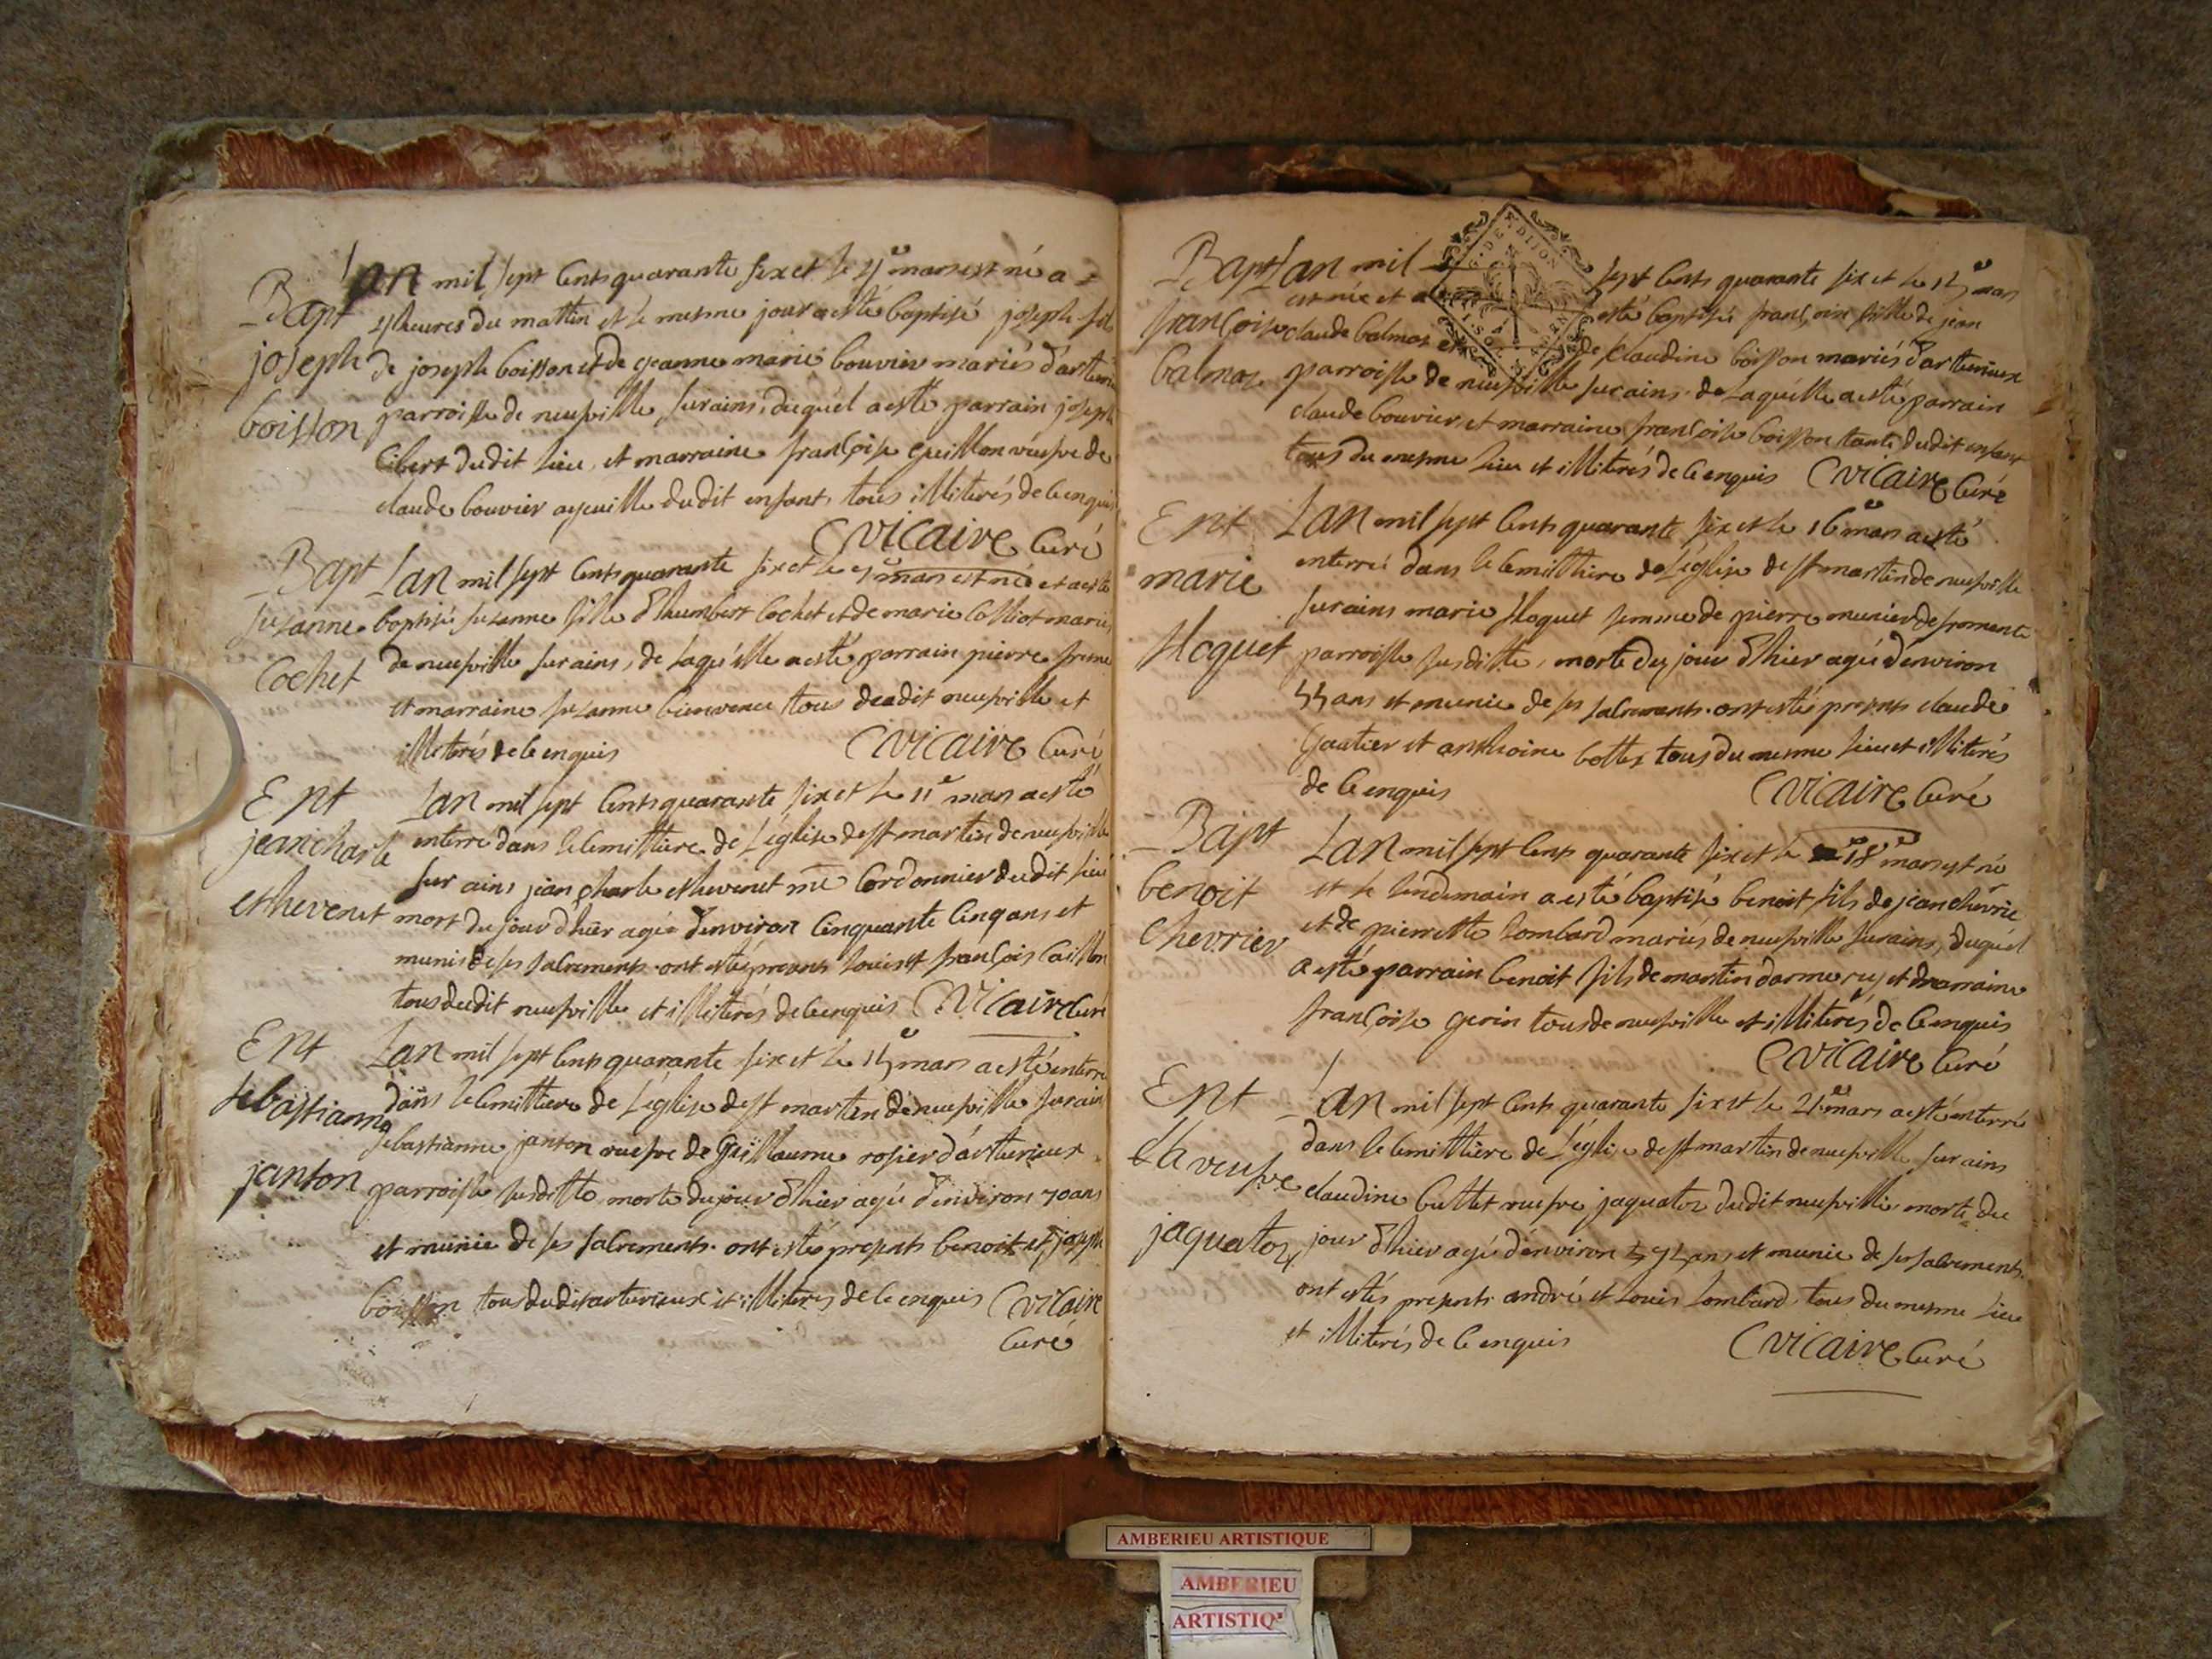 Bapt
joseph
boisson
Lan mil sept cents quarante six et le 4e mars est né a
4 heures du mattin et le mesme jour a esté baptisé joseph fils
de joseph boisson et de jeanne marie bouvier mariés d'arturieux
parroisse de neufville surains, duquel a esté parrain joseph
libert dudit lieu, et marraine françoise guillon veufve de
claude bouvier ayeuille dudit enfant, tous illiterés de ce enquis
Cvicaire Curé
Bapt
suzanne
Cochet
Lan mil sept cents quarante six et le mars est née et a esté
baptisée suzanne fille d'humbert Cochet et de marie Colliot mariés
de neufville surains, de laquelle a esté parrain pierre
et marraine suzanne bienvenu tous dudit neufville et
illiterés de ce enquis Cvicaire Curé
Ent
jean charle
esthevenet
Lan mil sept cents quarante six et le 11e mars a esté
enterré dans le cemittiere de l'église de st martin de neufville
sur ains jean charle esthevenet me Cordonnier dudit lieu
mort du jour d'hier agé d'environ cinquante cinq ans et
munis de ses sacrements. ont estés presents louis et françois Caillon
tous dudit neufville et illiterés de ce enquis Cvicaire Curé
Ent
sebastianne
janton
Lan mil sept cents quarante six et le 15e mars a esté enterré
dans le cemittiere de l'église de st martin de neufville surains
sebastianne janton veufve de guillaume rosier d'arturieux
parroisse susditte, morte du jour d'hier agée d'environ 70 ans
et munie de ses sacrements. ont estés presents benoit et joseph
boisson tous dudit arturieux et illiterés de ce enquis Cvicaire
Curé
Bapt
françoise
balmoz
Lan mil sept cents quarante six et le 15e mars
est née et a esté baptisée françoise fille de jean
claude balmoz et de claudine boisson mariés d'arturieux
parroisse de neufville sur ains. de laquelle a esté parrain
claude bouvier et marraine françoise boisson tante dudit enfant
tous du mesme lieu et illiterés de ce enquis Cvicaire Curé
Ent
marie
floquet
Lan mil sept cents quarante six et le 16e mars a esté
enterré dans le cemittiere de l'église de st martin de neufville
surains marie floquet femme de pierre munier de fromente
parroisse susditte, morte du jour d'hier agée d'environ
55 ans et munie de ses sacrements. ont estés presents claude
Gautier et anthoine bottex tous du mesme lieu et illiterés
de ce enquis Cvicaire Curé
Bapt
benoit
Chevrier
Lan mil sept cents quarante six et le 18e mars est né
et le lendemain a esté baptisé benoit fils de jean chevrier
et de pierrette lombard mariés de neufville surains, duquel
a esté parrain benoit fils de martin darmerey et marraine
françoise gerin tous de neufville et illiterés de ce enquis
Cvicaire Curé
Ent
la veufve
jaquatoz
Lan mil sept cents quarante six et le 21e mars a esté enterré
dans le cemittière de l'église de st martin de neufville surains
claudine buttet veufve jaquatoz dudit neufville. morte du
jour d'hier agée d'environ ans et munie de ses sacrements.
ont estés presents andré et louis lombard, tous du mesme lieu
et illiterés de ce enquis Cvicaire Curé
AMBERIEU ARTISTIQUE
AMBERIEU
ARTISTIQ